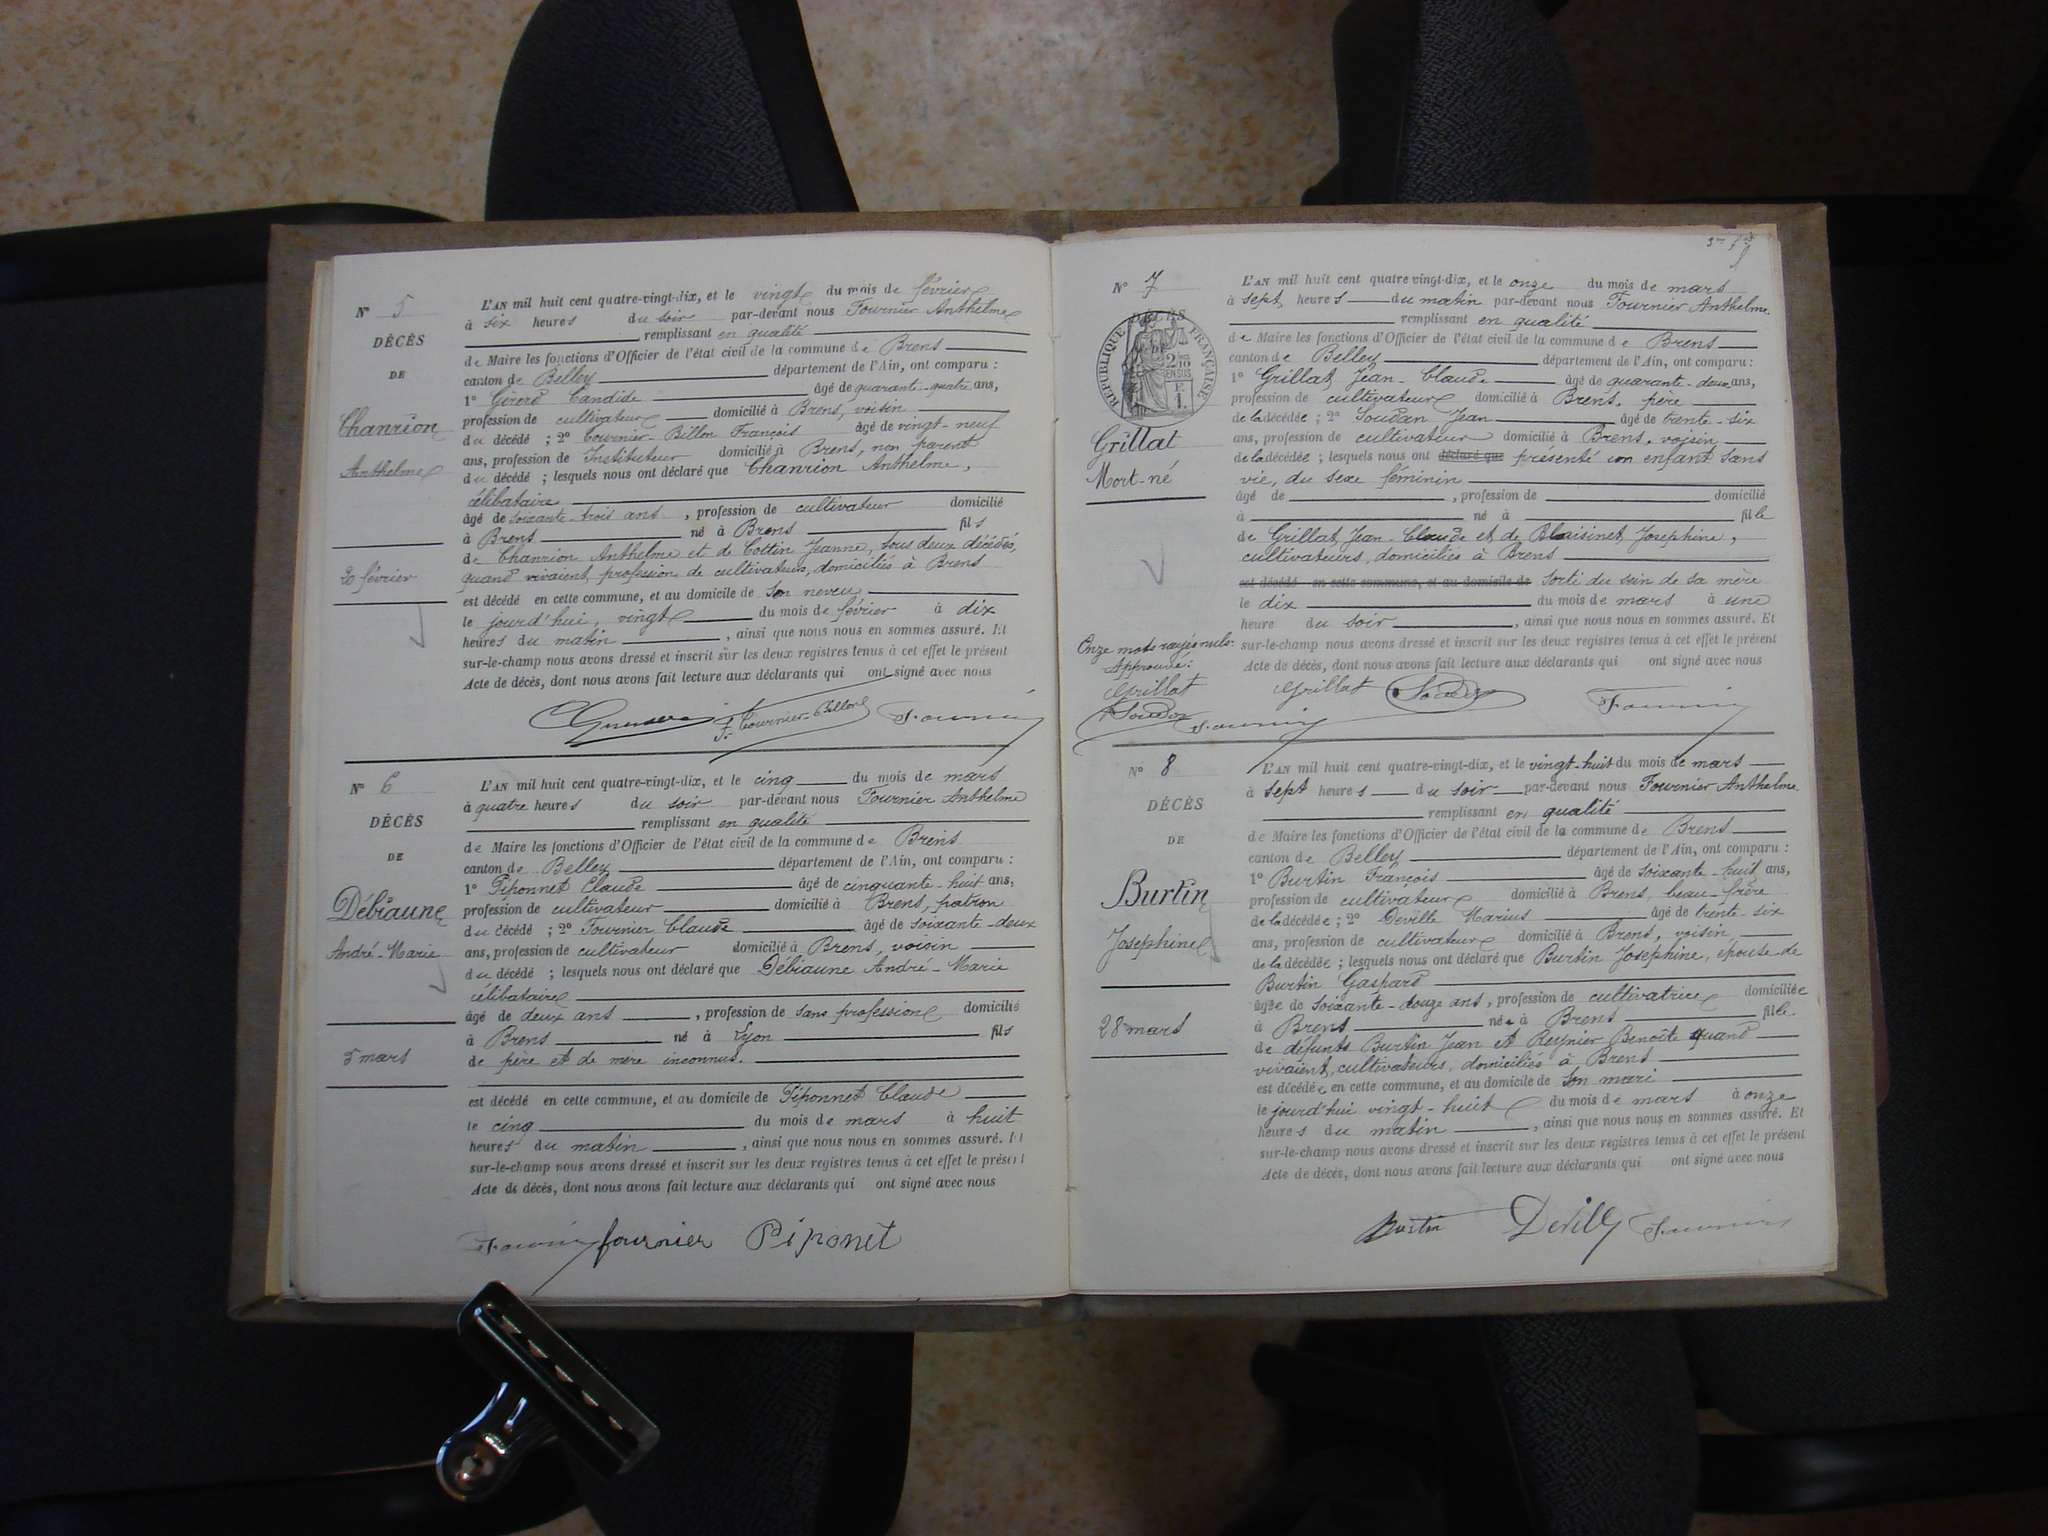 N° 5
DÉCÈS
DE
Chanrion
Anthelme
20 février
L'AN mil huit cent quatre-vingt-dix, et le vingt du mois de février
à six heures du soir par-devant nous Fournier Anthelme
remplissant en qualité
de Maire les fonctions d'Officier de l'état civil de la commune de Brens
canton de Belley département de l'Ain, ont comparu :
1° Girerd Candide âgé de quarante-quatre ans,
profession de cultivateur domicilié à Brens, voisin
du décédé ; 2° Tournier-Billon François âgé de vingt-neuf
ans, profession de Instituteur domicilié à Brens, non parent
du décédé ; lesquels nous ont déclaré que Chanrion Anthelme,
célibataire
âgé de soixante-trois ans, profession de cultivateur domicilié
à Brens né à Brens fils
de Chanrion Anthelme et de Cottin Jeanne, tous deux décédés,
quand vivaient, profession de cultivateurs, domiciliés à Brens
est décédé en cette commune, et au domicile de son neveu
le jourd'hui, vingt du mois de février à dix
heures du matin, ainsi que nous nous en sommes assuré. Et
sur-le-champ nous avons dressé et inscrit sur les deux registres tenus à cet effet le présent
Acte de décès, dont nous avons fait lecture aux déclarants qui ont signé avec nous
F. Tournier-Billon Fournier
N° 6
DÉCÈS
DE
Débiaune
André-Marie
5 mars
L'AN mil huit cent quatre-vingt-dix, et le cinq du mois de mars
à quatre heures du soir par-devant nous Fournier Anthelme
remplissant en qualité
de Maire les fonctions d'Officier de l'état civil de la commune de Brens
canton de Belley département de l'Ain, ont comparu :
1° Piponnet Claude âgé de cinquante-huit ans,
profession de cultivateur domicilié à Brens, patron
du décédé ; 2° Fournier Claude âgé de soixante-deux
ans, profession de cultivateur domicilié à Brens, voisin
du décédé ; lesquels nous ont déclaré que Débiaune André-Marie
célibataire
âgé de deux ans, profession de sans profession domicilié
à Brens né à Lyon fils
de père et de mère inconnus.
est décédé en cette commune, et au domicile de Piponnet Claude
le cinq du mois de mars à huit
heures du matin, ainsi que nous nous en sommes assuré. Et
sur-le-champ nous avons dressé et inscrit sur les deux registres tenus à cet effet le présent
Acte de décès, dont nous avons fait lecture aux déclarants qui ont signé avec nous
Fournier fournier Piponet
N° 7
DÉCÈS
RÉPUBLIQUE FRANÇAISE
Grillat
Mort-né
Onze mots rayés nuls:
Approuvé:
Grillat
Soudan Fournier
L'AN mil huit cent quatre-vingt-dix, et le onze du mois de mars
à sept heures du matin par-devant nous Fournier Anthelme
remplissant en qualité
de Maire les fonctions d'Officier de l'état civil de la commune de Brens
canton de Belley département de l'Ain, ont comparu :
1° Grillat Jean-Claude âgé de quarante-deux ans,
profession de cultivateur domicilié à Brens, père
de la décédée ; 2° Soudan Jean âgé de trente-six
ans, profession de cultivateur domicilié à Brens, voisin
de la décédée ; lesquels nous ont déclaré que présenté un enfant sans
vie, du sexe féminin
âgé de , profession de domicilié
à né à fille
de Grillat Jean-Claude et de Blaisinet Josephine,
cultivateurs, domiciliés à Brens
est décédé en cette commune, et au domicile de sorti du sein de sa mère
le dix du mois de mars à une
heure du soir, ainsi que nous nous en sommes assuré. Et
sur-le-champ nous avons dressé et inscrit sur les deux registres tenus à cet effet le présent
Acte de décès, dont nous avons fait lecture aux déclarants qui ont signé avec nous
Grillat Soudan Fournier
N° 8
DÉCÈS
DE
Burtin
Josephine
28 mars
L'AN mil huit cent quatre-vingt-dix, et le vingt-huit du mois de mars
à sept heures du soir par-devant nous Fournier Anthelme
remplissant en qualité
de Maire les fonctions d'Officier de l'état civil de la commune de Brens
canton de Belley département de l'Ain, ont comparu :
1° Burtin François âgé de soixante-huit ans,
profession de cultivateur domicilié à Brens, beau-frère
de la décédée ; 2° Deville Marius âgé de trente-six
ans, profession de cultivateur domicilié à Brens, voisin
de la décédée ; lesquels nous ont déclaré que Burtin Josephine, épouse de
Burtin Gaspard
âgée de soixante-douze ans, profession de cultivatrice domiciliée
à Brens née à Brens fille
de défunts Burtin Jean et Reynier Benoîte quand
vivaient, cultivateurs, domiciliés à Brens
est décédée en cette commune, et au domicile de son mari
le jourd'hui vingt-huit du mois de mars à onze
heures du matin, ainsi que nous nous en sommes assuré. Et
sur-le-champ nous avons dressé et inscrit sur les deux registres tenus à cet effet le présent
Acte de décès, dont nous avons fait lecture aux déclarants qui ont signé avec nous
Burtin Deville Fournier